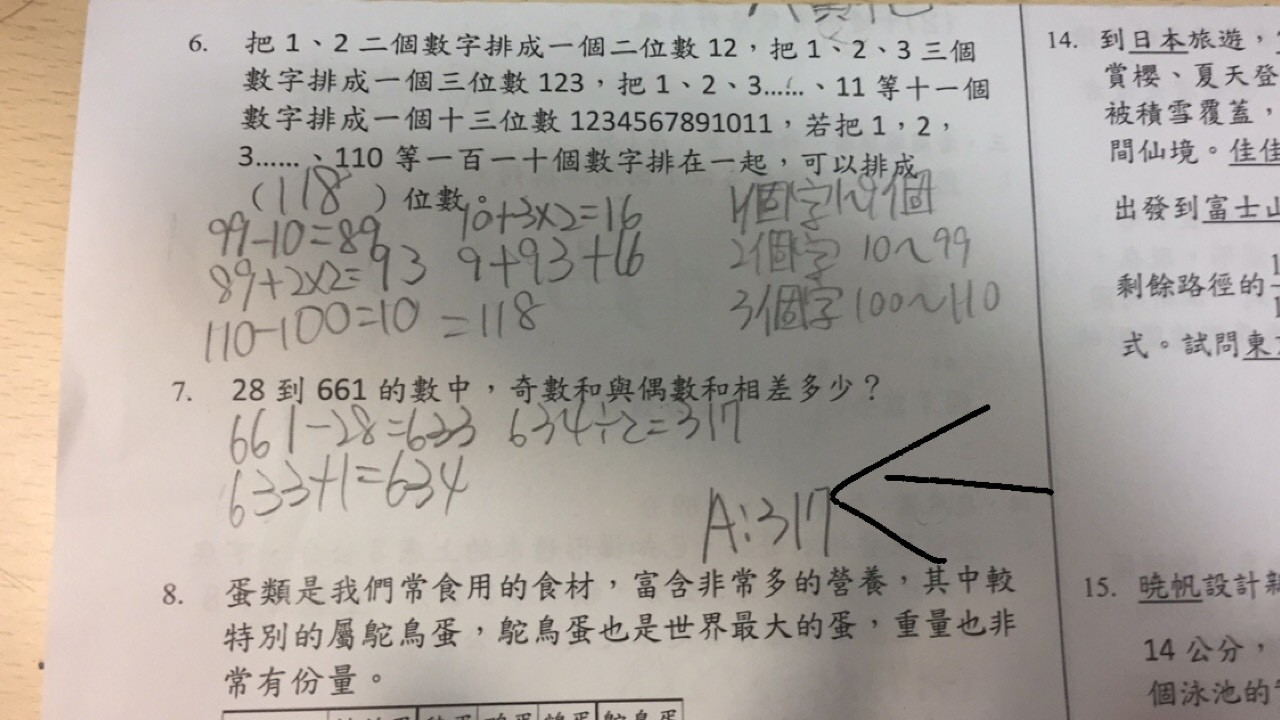 6. 把 1、2 二個數字排成一個二位數 12，把 1、2、3 三個
數字排成一個三位數 123，把 1、2、3……、11 等十一個
數字排成一個十三位數 1234567891011，若把 1，2，
3……、110 等一百一十個數字排在一起，可以排成
（118）位數。
99-10=89
89+2x2=93
110-100=10
10+3x2=16
9+93+16
=118
1個字1~9個
2個字 10~99
3個字 100~110
7. 28 到 661 的數中，奇數和與偶數和相差多少？
661-28=633 634÷2=317
633+1=634
A:317
8. 蛋類是我們常食用的食材，富含非常多的營養，其中較
特別的屬鴕鳥蛋，鴕鳥蛋也是世界最大的蛋，重量也非
常有份量。
14. 到日本旅遊，
賞櫻、夏天登
被積雪覆蓋，
間仙境。佳佳
出發到富士山
剩餘路徑的
式。試問東
15. 曉帆設計新
14 公分，
個泳池的